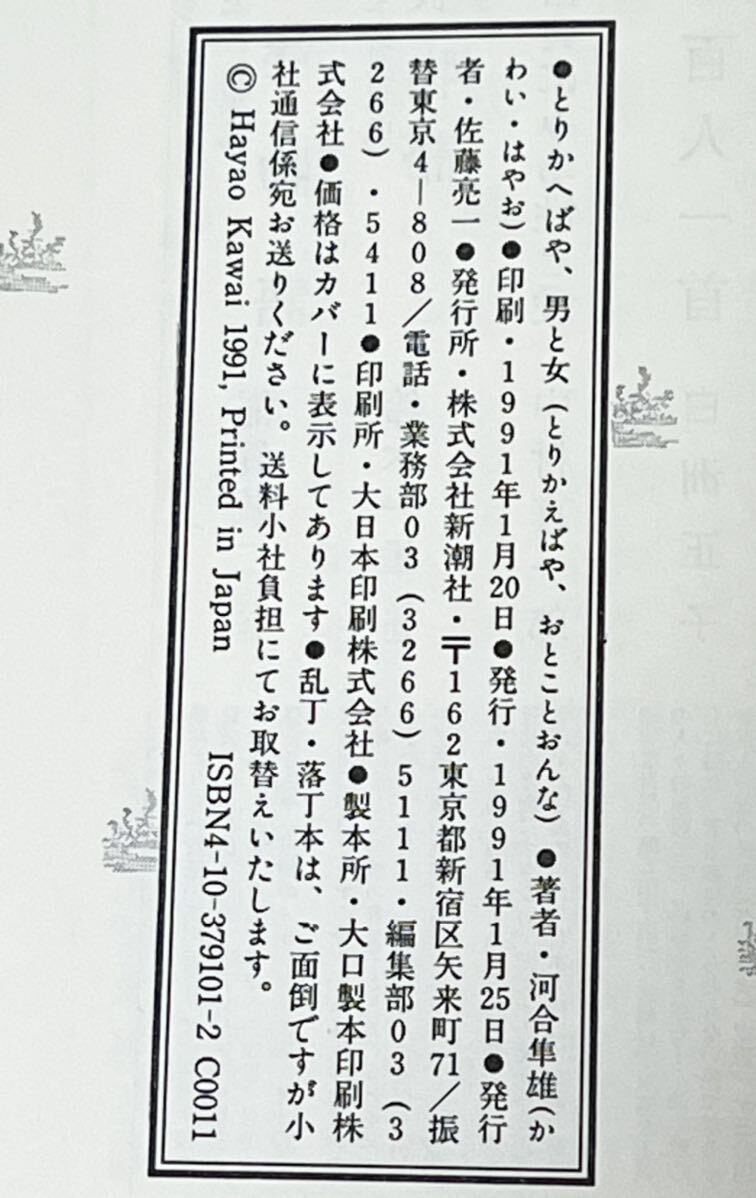 ●とりかへばや、男と女（とりかえばや、おとことおんな）●著者・河合隼雄（か
わい・はやお）●印刷・1991年1月20日●発行・1991年1月25日●発行
者・佐藤亮一●発行所・株式会社新潮社・〒162東京都新宿区矢来町71／振
替東京4―808／電話・業務部03（3266）5111・編集部03（3
266）・5411●印刷所・大日本印刷株式会社●製本所・大口製本印刷株
式会社●価格はカバーに表示してあります●乱丁・落丁本は、ご面倒ですが小
社通信係宛お送りください。送料小社負担にてお取替えいたします。
© Hayao Kawai 1991, Printed in Japan ISBN4-10-379101-2 C0011
百人一首 白洲正子